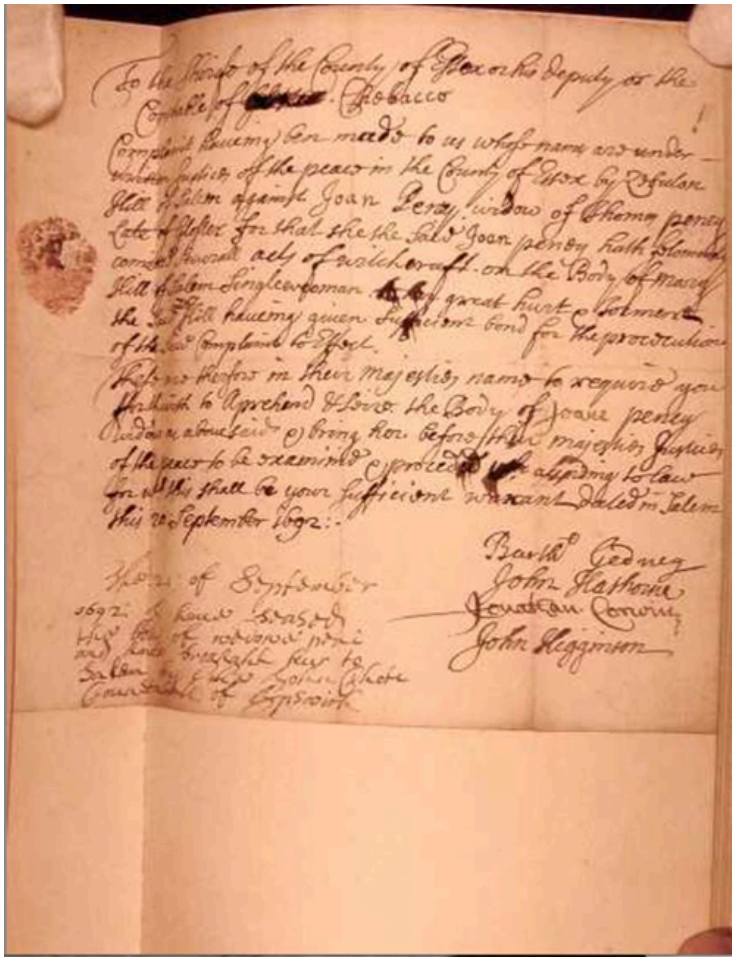 To the Shirife of the County of Essex or his deputy or the
Constable of Chebacco
Complaint haveing ben made to us whose name are under
written Justices of the peace in the County of Essex by Zebulon
Hill of Salem against Joan Peney widow of Thomas peney
Late of Gloster for that she the said Joan peney hath
acts of witchcraft on the Body of mary
Hill of Salem Singlewoman great hurt & torment
the said Hill haveing given sufficient bond for the prosecution
of the said Complaint to Effect.
These are therfore in their majesties name to require you
forthwith to Aprehend & seize the Body of Joane peney
widow as abovesaid & bring her before their majesties Justices
of the peace to be examined & proceded according to law
for wch this shall be your sufficient warrant dated in Salem
this September 1692:.
Bartho Gedney
John Hathorne
Jonathan Corwin
John Higginson
The of September
1692: I have seased
the body of
and have brought her to
Salem
of Ipswich